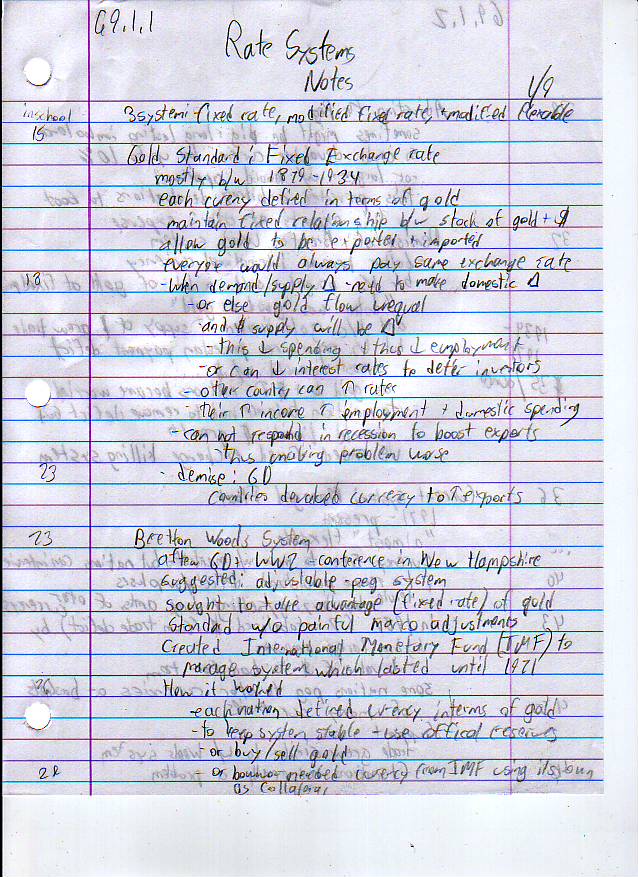 69.1.1
Rate Systems
Notes
1/9
inschool 3 system: fixed rate, modified fixed rate, + modified flexable
15
Gold Standard: Fixed Exchange rate
mostly b/w 1879-1934
each cureny defired in terms of gold
maintain fixed relationship b/w stock of gold + $
allow gold to be exported + imported
everyone would always pay same exchange rate
18 - when demand/supply Δ - need to make domestic Δ
- or else gold flow unequal
- and $ supply will be Δ
- this ↓ spending + thus ↓ employment
- or can ↓ interest rates to deter investors
- other country can ↑ rates
- their ↑ income ↑ employment + domestic spending
- can not respond in recession to boost exports
- thus making problem worse
23 - demise: GD
Countries devalued currency to ↑ exports
23 Bretton Woods System
after GD + WW2 - conference in New Hampshire
suggested: adjustable-peg system
sought to take advantage (fixed rate) of gold
standard w/o painful macro adjustments
Created International Monetary Fund (IMF) to
manage system which lasted until 1971
26 How it worked
- each nation defined curency in terms of gold
- to keep system stable + use offical reserves
- or buy/sell gold
28 - or borrow needed currency from IMF using its own
as collateral